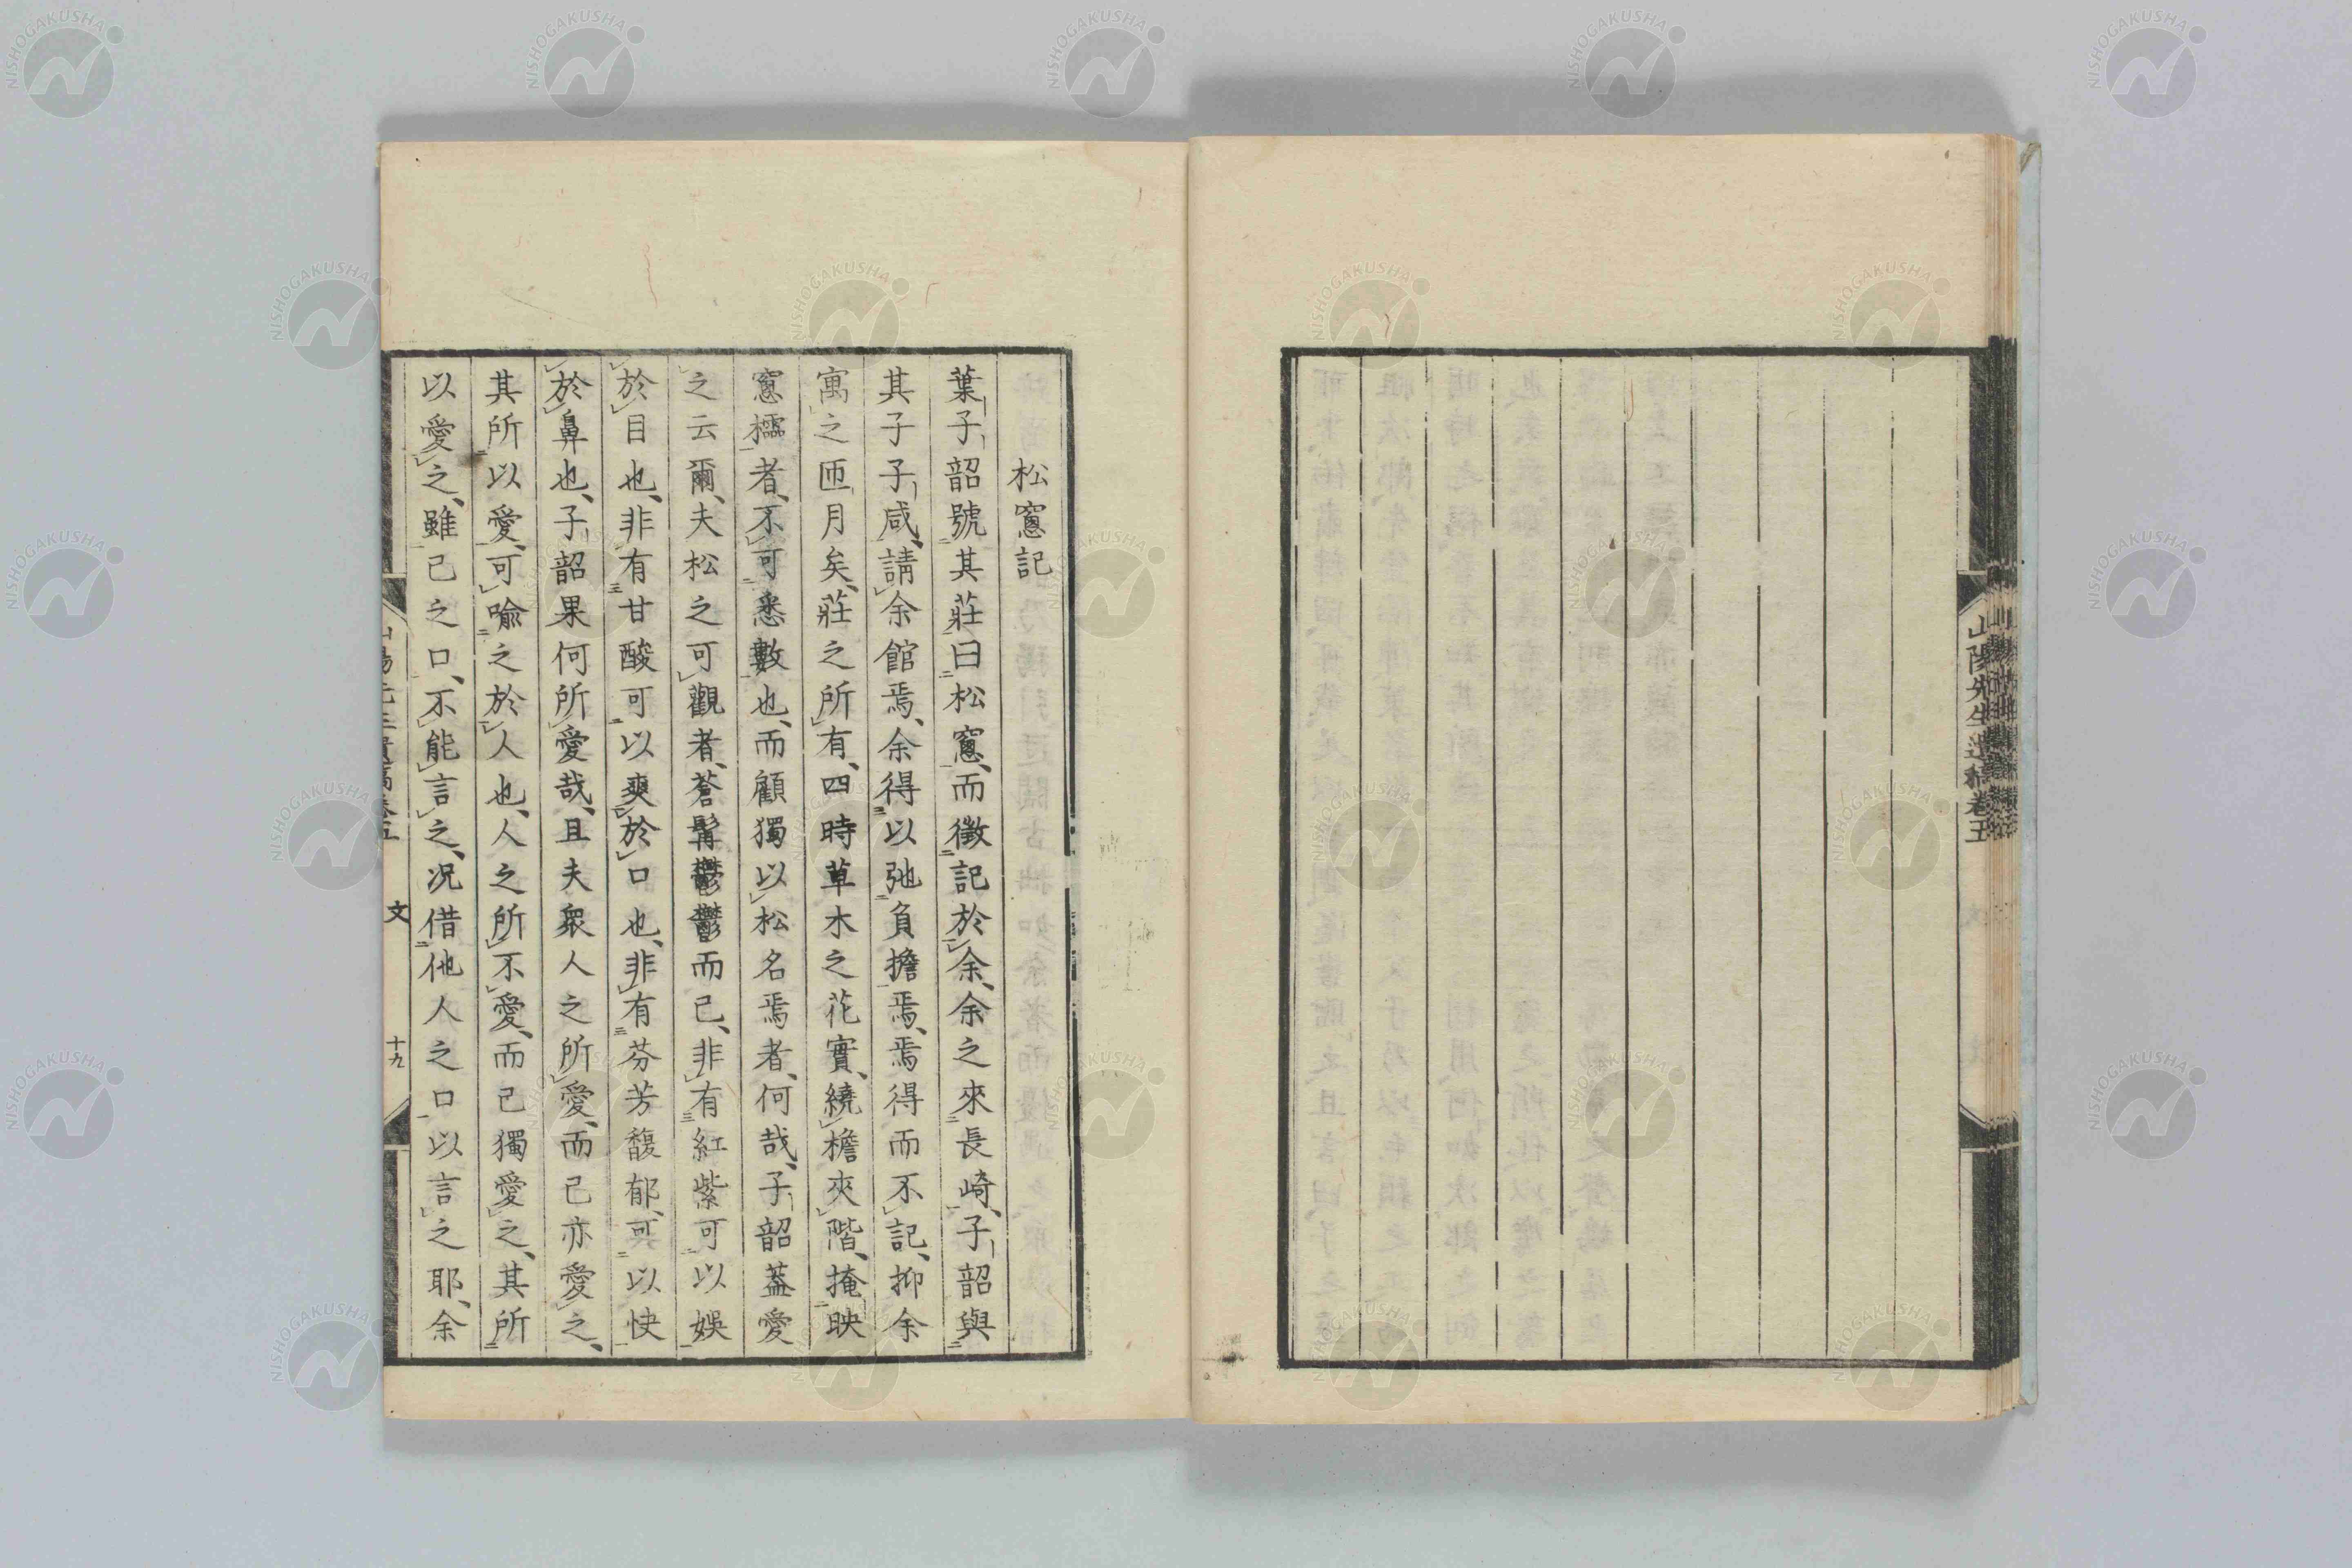 山陽先生遺稿卷五
松窻記
葉子韶號其莊曰松窻、而徵記於余、余之來長崎、子韶與
其子子咸、請余館焉、余得以弛負擔焉、焉得而不記、抑余
寓之匝月矣、莊之所有、四時草木之花實、繞檐夾階、掩映
窻櫺者、不可悉數也、而顧獨以松名焉者、何哉、子韶蓋愛
之云爾、夫松之可觀者、蒼髯鬱鬱而已、非有紅紫可以娛
於目也、非有甘酸可以爽於口也、非有芬芳馥郁、可以快
於鼻也、子韶果何所愛哉、且夫衆人之所愛、而己亦愛之、
其所以愛、可喩之於人也、人之所不愛、而己獨愛之、其所
以愛之、雖己之口、不能言之、況借他人之口以言之耶、余
山陽先生遺稿卷五
文
十九
NISHOGAKUSHA